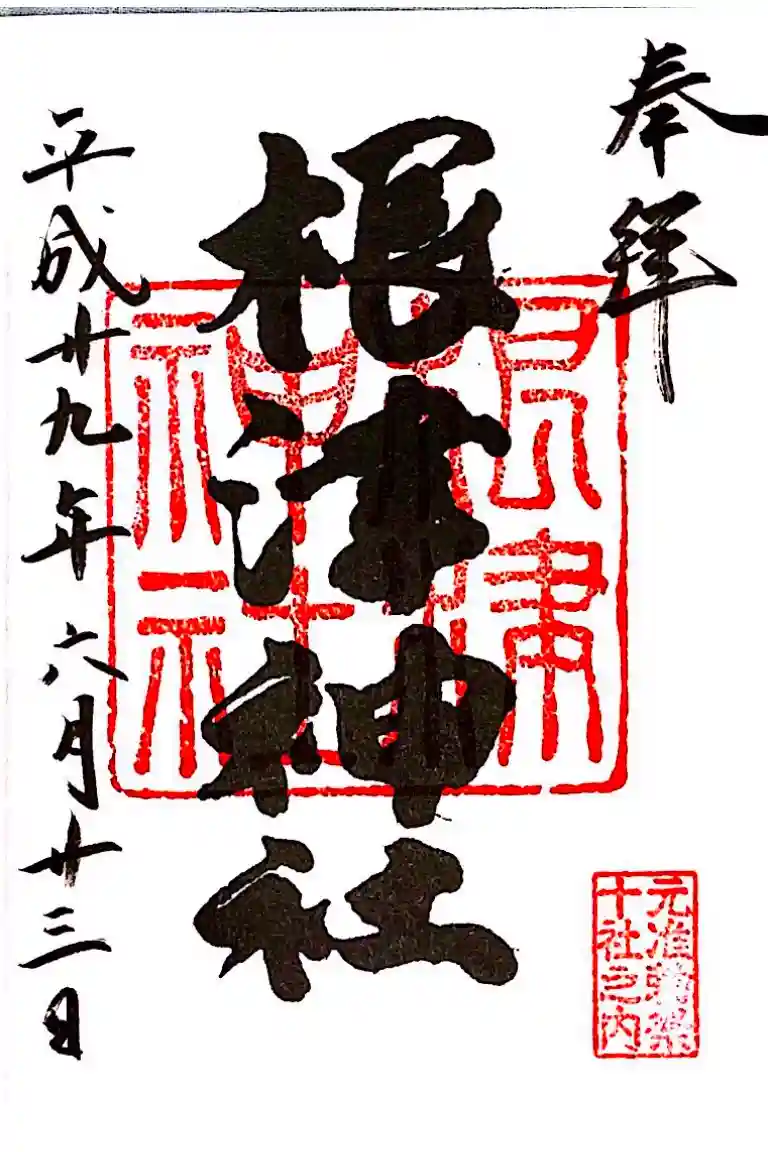 奉拝
根津神社
根津神社
平成廿九年六月廿三日
元准勅祭
十社之内